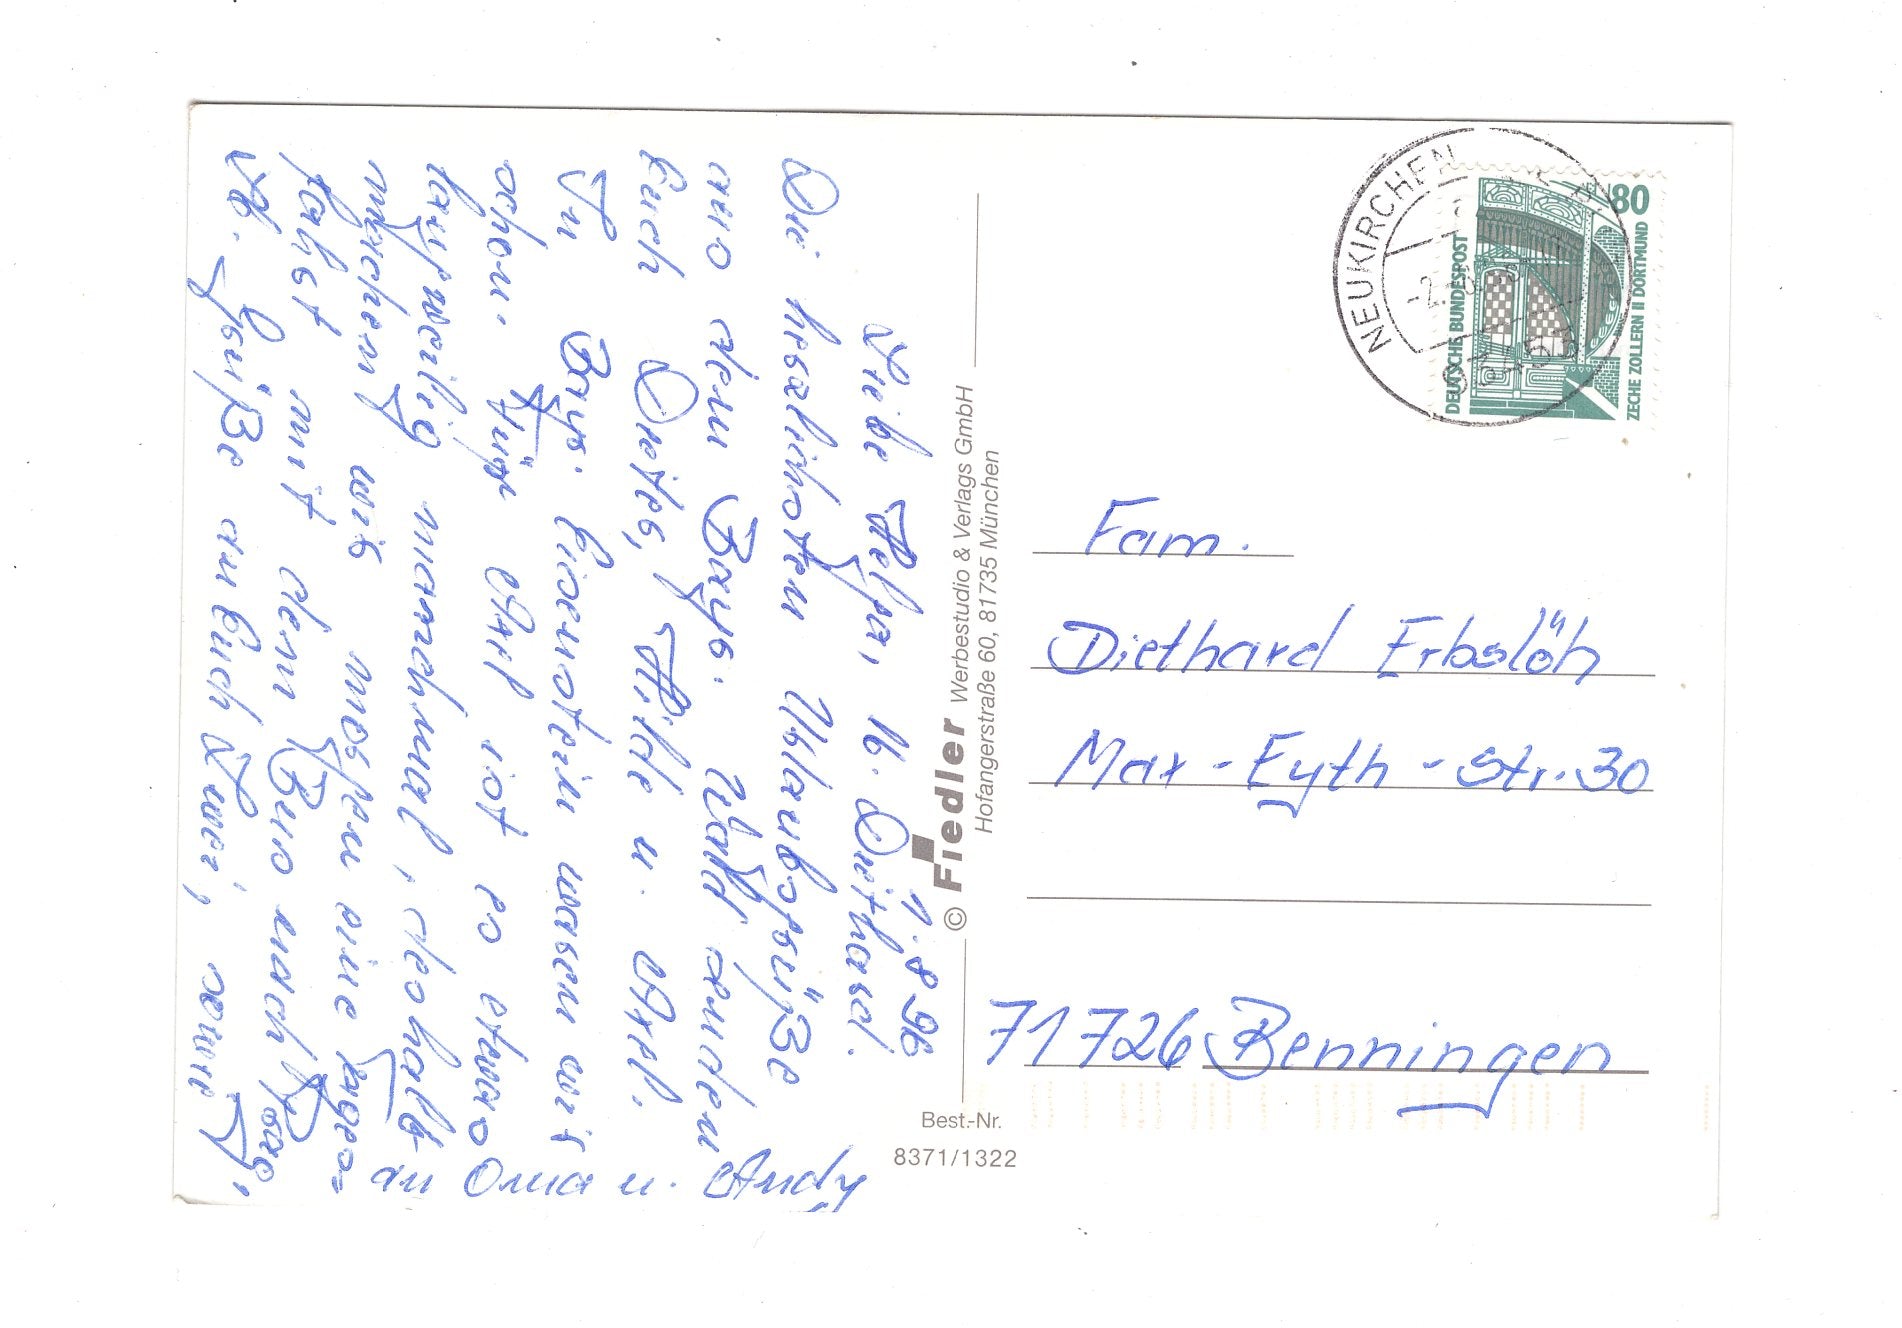 1.8.96
Liebe Helga, lb. Diethard.
Die herzlichsten Urlaubsgrüße
aus dem Bayr. Wald senden
Euch Dieter, Hilde u. Axel.
In Bayr. Eisenstein waren wir
schon. Für Axel ist es etwas
langweilig manchmal, deshalb
machen wir morgen eine Tages-
fahrt mit dem Bus nach Prag.
Lb. Grüße an Euch Zwei, sowie
an Oma u. Andy
© Fiedler Werbestudio & Verlags GmbH
Hofangerstraße 60, 81735 München
Best.-Nr.
8371/1322
NEUKIRCHEN
80
DEUTSCHE BUNDESPOST
ZECHE ZOLLERN II DORTMUND
Fam.
Diethard Erbslöh
Max-Eyth-Str. 30
71726 Benningen